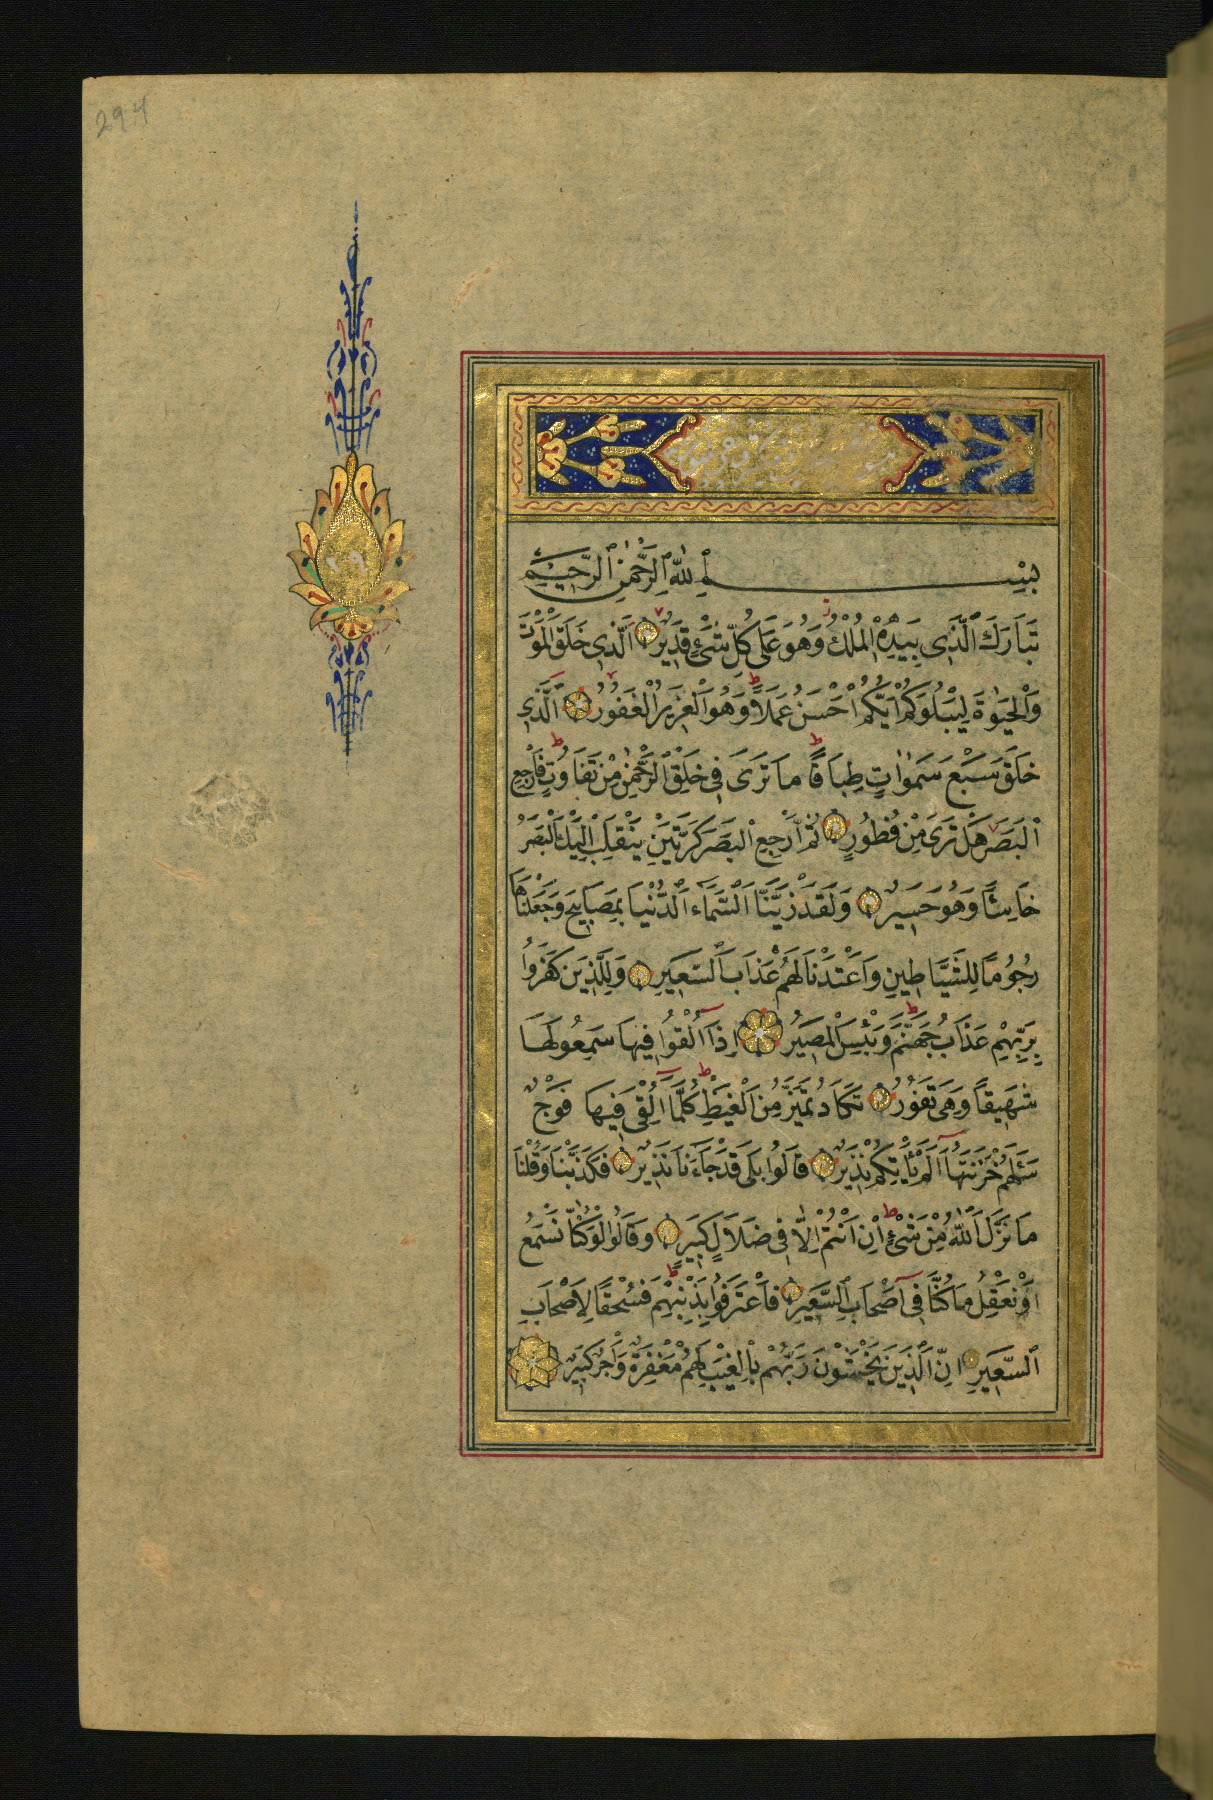 294
بِسْمِ اللّٰهِ الرَّحْمٰنِ الرَّحِيْمِ
تَبَارَكَ الَّذِى بِيَدِهِ الْمُلْكُ وَهُوَ عَلَى كُلِّ شَىْءٍ قَدِيرٌ الَّذِى خَلَقَ الْمَوْتَ
وَالْحَيٰوةَ لِيَبْلُوَكُمْ اَيُّكُمْ اَحْسَنُ عَمَلًا وَهُوَ الْعَزِيزُ الْغَفُورُ اَلَّذِى
خَلَقَ سَبْعَ سَمٰوَاتٍ طِبَاقًا مَا تَرَى فِى خَلْقِ الرَّحْمٰنِ مِنْ تَفَاوُتٍ فَارْجِعِ
الْبَصَرَ هَلْ تَرَى مِنْ فُطُورٍ ثُمَّ ارْجِعِ الْبَصَرَ كَرَّتَيْنِ يَنْقَلِبْ اِلَيْكَ الْبَصَرُ
خَاسِئًا وَهُوَ حَسِيرٌ وَلَقَدْ زَيَّنَّا السَّمَاءَ الدُّنْيَا بِمَصَابِيحَ وَجَعَلْنَاهَا
رُجُومًا لِلشَّيَاطِينِ وَاَعْتَدْنَا لَهُمْ عَذَابَ السَّعِيرِ وَلِلَّذِينَ كَفَرُوا
بِرَبِّهِمْ عَذَابُ جَهَنَّمَ وَبِئْسَ الْمَصِيرُ اِذَا اُلْقُوا فِيهَا سَمِعُوا لَهَا
شَهِيقًا وَهِىَ تَفُورُ تَكَادُ تَمَيَّزُ مِنَ الْغَيْظِ كُلَّمَا اُلْقِىَ فِيهَا فَوْجٌ
سَئَلَهُمْ خَزَنَتُهَا اَلَمْ يَأْتِكُمْ نَذِيرٌ قَالُوا بَلَى قَدْ جَاءَنَا نَذِيرٌ فَكَذَّبْنَا وَقُلْنَا
مَا نَزَّلَ اللّٰهُ مِنْ شَىْءٍ اِنْ اَنْتُمْ اِلَّا فِى ضَلَالٍ كَبِيرٍ وَقَالُوا لَوْ كُنَّا نَسْمَعُ
اَوْ نَعْقِلُ مَا كُنَّا فِى اَصْحَابِ السَّعِيرِ فَاعْتَرَفُوا بِذَنْبِهِمْ فَسُحْقًا لِاَصْحَابِ
السَّعِيرِ اِنَّ الَّذِينَ يَخْشَوْنَ رَبَّهُمْ بِالْغَيْبِ لَهُمْ مَغْفِرَةٌ وَاَجْرٌ كَبِيرٌ